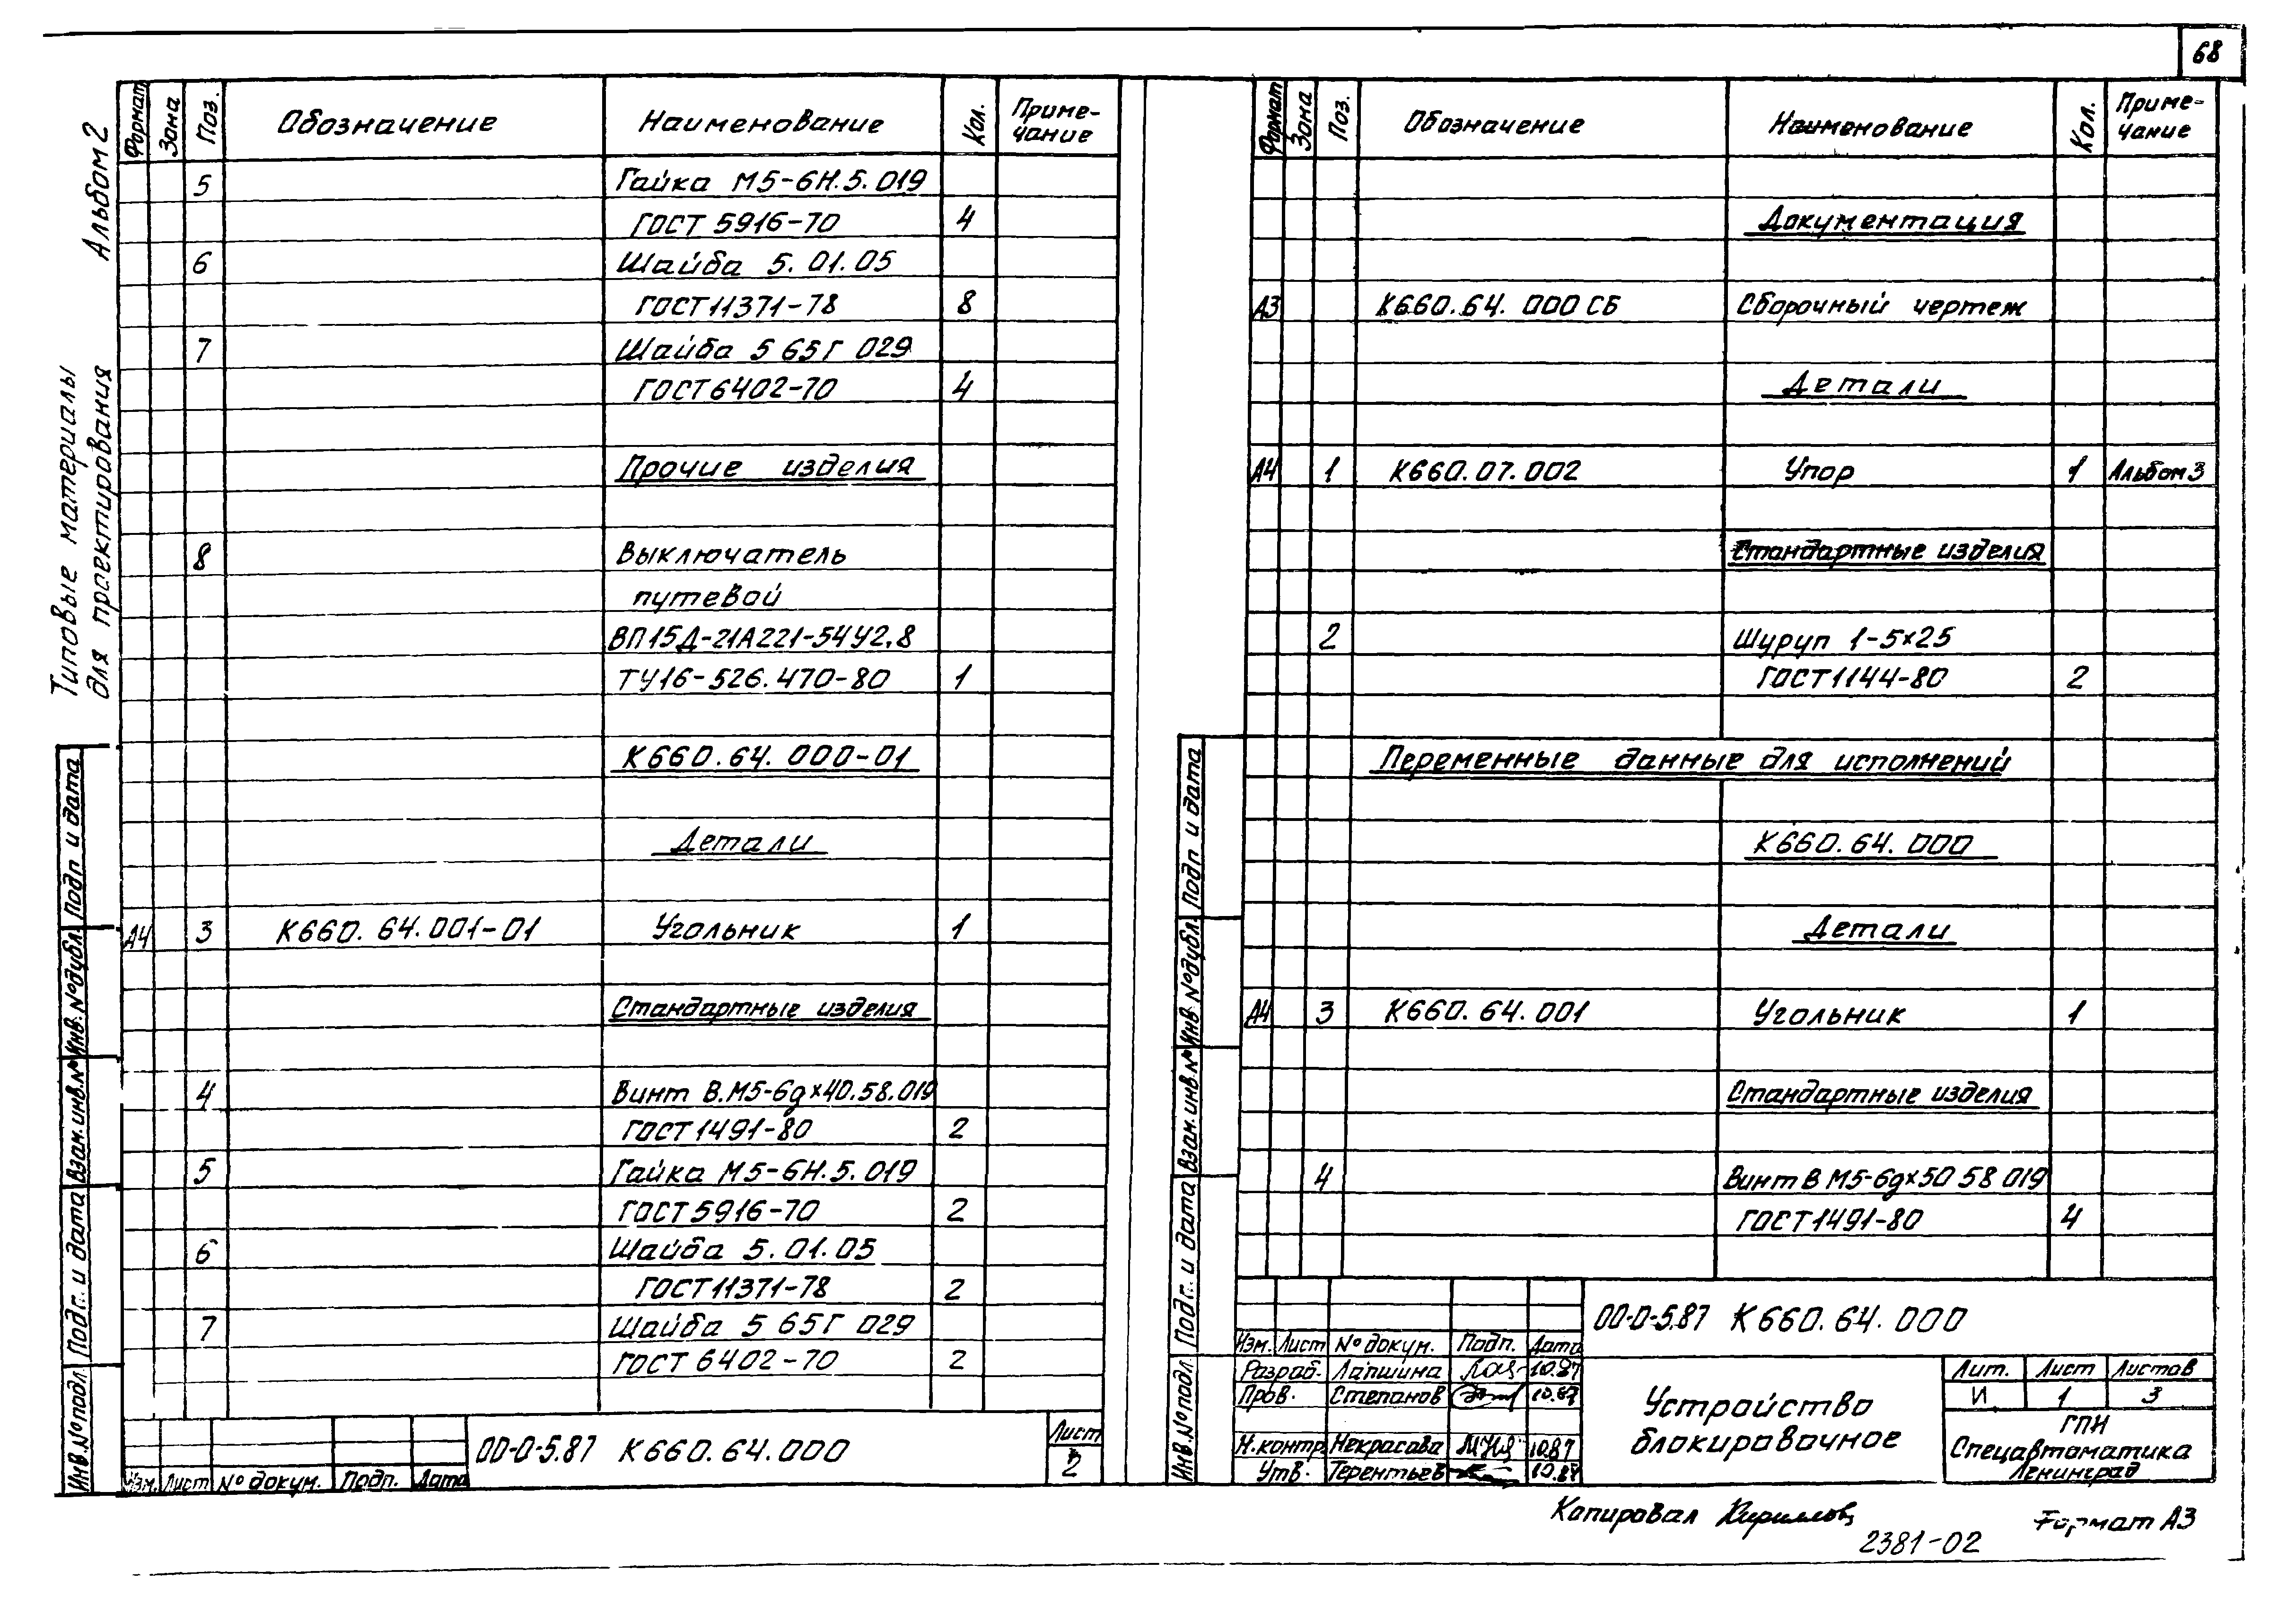 68
Типовые материалы
для проектирования
Альбом 2
Формат Зона Поз. Обозначение Наименование Кол. Приме-
чание
5 Гайка М5-6Н.5.019
ГОСТ 5916-70 4
6 Шайба 5.01.05
ГОСТ 11371-78 8
7 Шайба 5 65Г 029
ГОСТ 6402-70 4
Прочие изделия
8 Выключатель
путевой
ВП15Д-21А221-54У2.8
ТУ16-526.470-80 1
К660.64.000-01
Детали
А4 3 К660.64.001-01 Угольник 1
Стандартные изделия
4 Винт В.М5-6gх40.58.019
ГОСТ 1491-80 2
5 Гайка М5-6Н.5.019
ГОСТ 5916-70 2
6 Шайба 5.01.05
ГОСТ 11371-78 2
7 Шайба 5 65Г 029
ГОСТ 6402-70 2
Инв.№ подл. Подп. и дата Взам.инв.№ Инв.№ дубл. Подп и дата
Изм. Лист № докум. Подп. Дата
00-0-5.87 К660.64.000
Лист
2
Формат Зона Поз. Обозначение Наименование Кол. Приме-
чание
Документация
А3 К660.64.000 СБ Сборочный чертеж
Детали
А4 1 К660.07.002 Упор 1 Альбом 3
Стандартные изделия
2 Шуруп 1-5х25
ГОСТ 1144-80 2
Переменные данные для исполнений
К660.64.000
Детали
А4 3 К660.64.001 Угольник 1
Стандартные изделия
4 Винт В М5-6gх50 58 019
ГОСТ 1491-80 4
Инв.№ подл. Подп. и дата Взам.инв.№ Инв №дубл. Подп и дата
00-0-5.87 К660.64.000
Изм. Лист № докум. Подп. Дата
Разраб. Лапшина 10.87
Пров. Степанов 10.87
Н.контр. Некрасова 10.87
Утв. Терентьев 10.87
Устройство
блокировочное
Лит. Лист Листов
И 1 3
ГПИ
Спецавтоматика
Ленинград
Копировал
Формат А3
2381-02